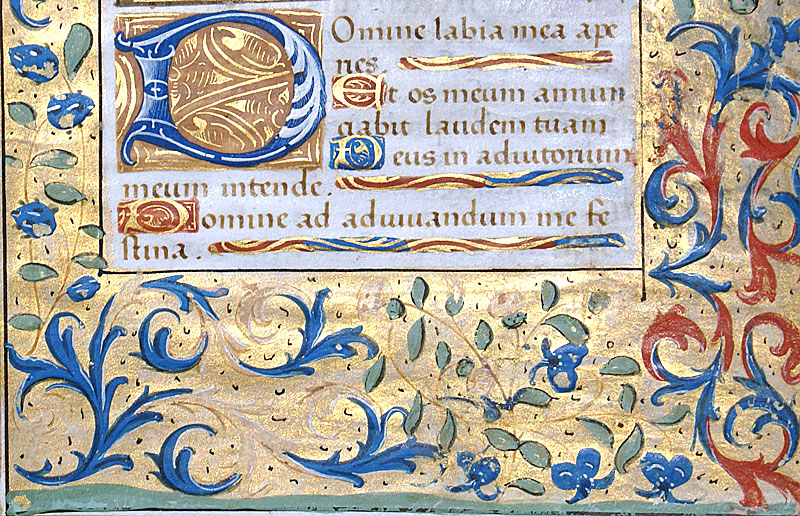 Domine labia mea ape
ries
Et os meum annun
ciabit laudem tuam
Deus in adiutorium
meum intende.
Domine ad adiuuandum me fe
stina.